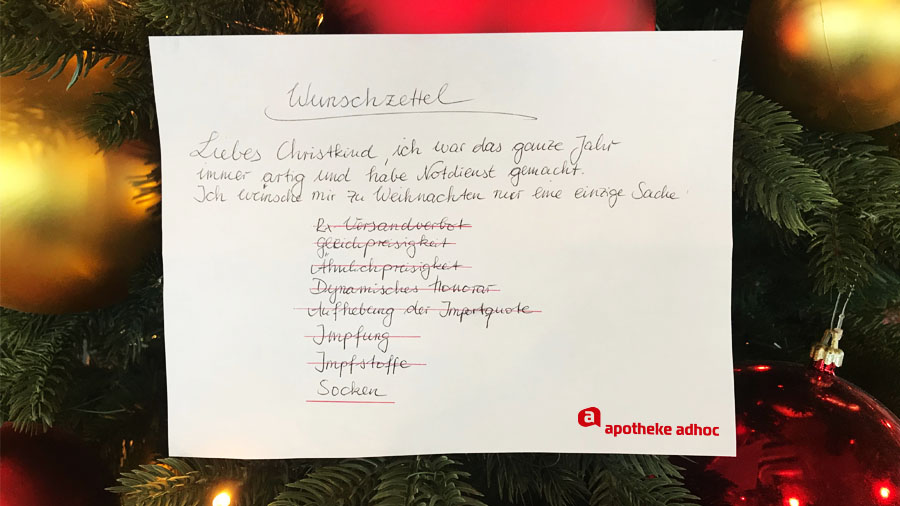 Wunschzettel
Liebes Christkind, ich war das ganze Jahr
immer artig und habe Notdienst gemacht.
Ich wünsche mir zu Weihnachten nur eine einzige Sache:
Rx-Versandverbot
Gleichpreisigkeit
Ähnlichpreisigkeit
Dynamisches Honorar
Aufhebung der Importquote
Impfung
Impfstoffe
Socken
a apotheke adhoc